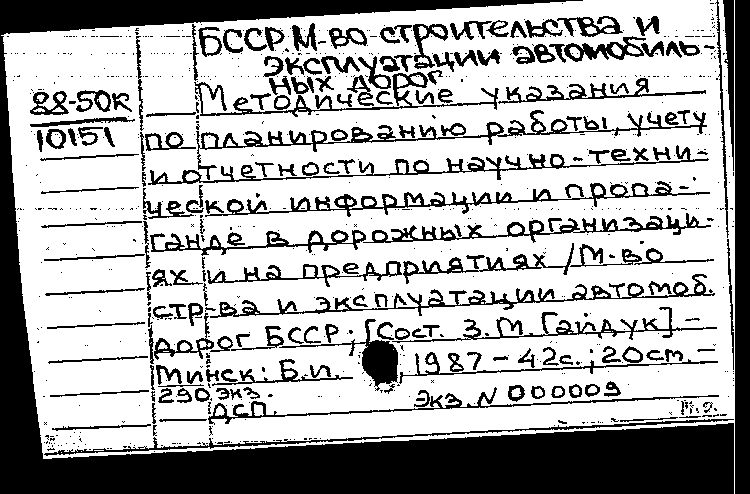 БССР. М-во строительства и
эксплуатации автомобиль-
ных дорог.
88-50к
10151
Методические указания
по планированию работы, учету
и отчетности по научно-техни-
ческой информации и пропа-
ганде в дорожных организаци-
ях и на предприятиях / М-во
стр-ва и эксплуатации автомоб.
дорог БССР; [Сост. З. М. Гайдук]. -
Минск: Б.и., 1987 - 42с.; 20см. -
290 экз.
ДСП.
Экз. N 000009